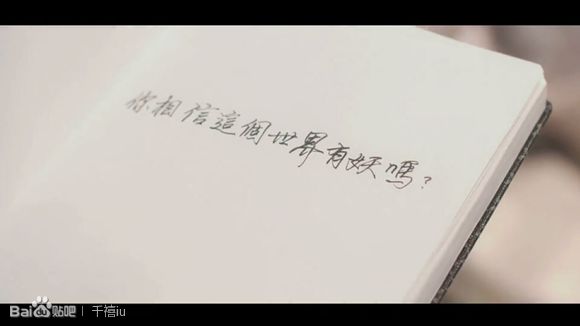 你相信這個世界有妖嗎?
Bai贴吧 | 千禧iu